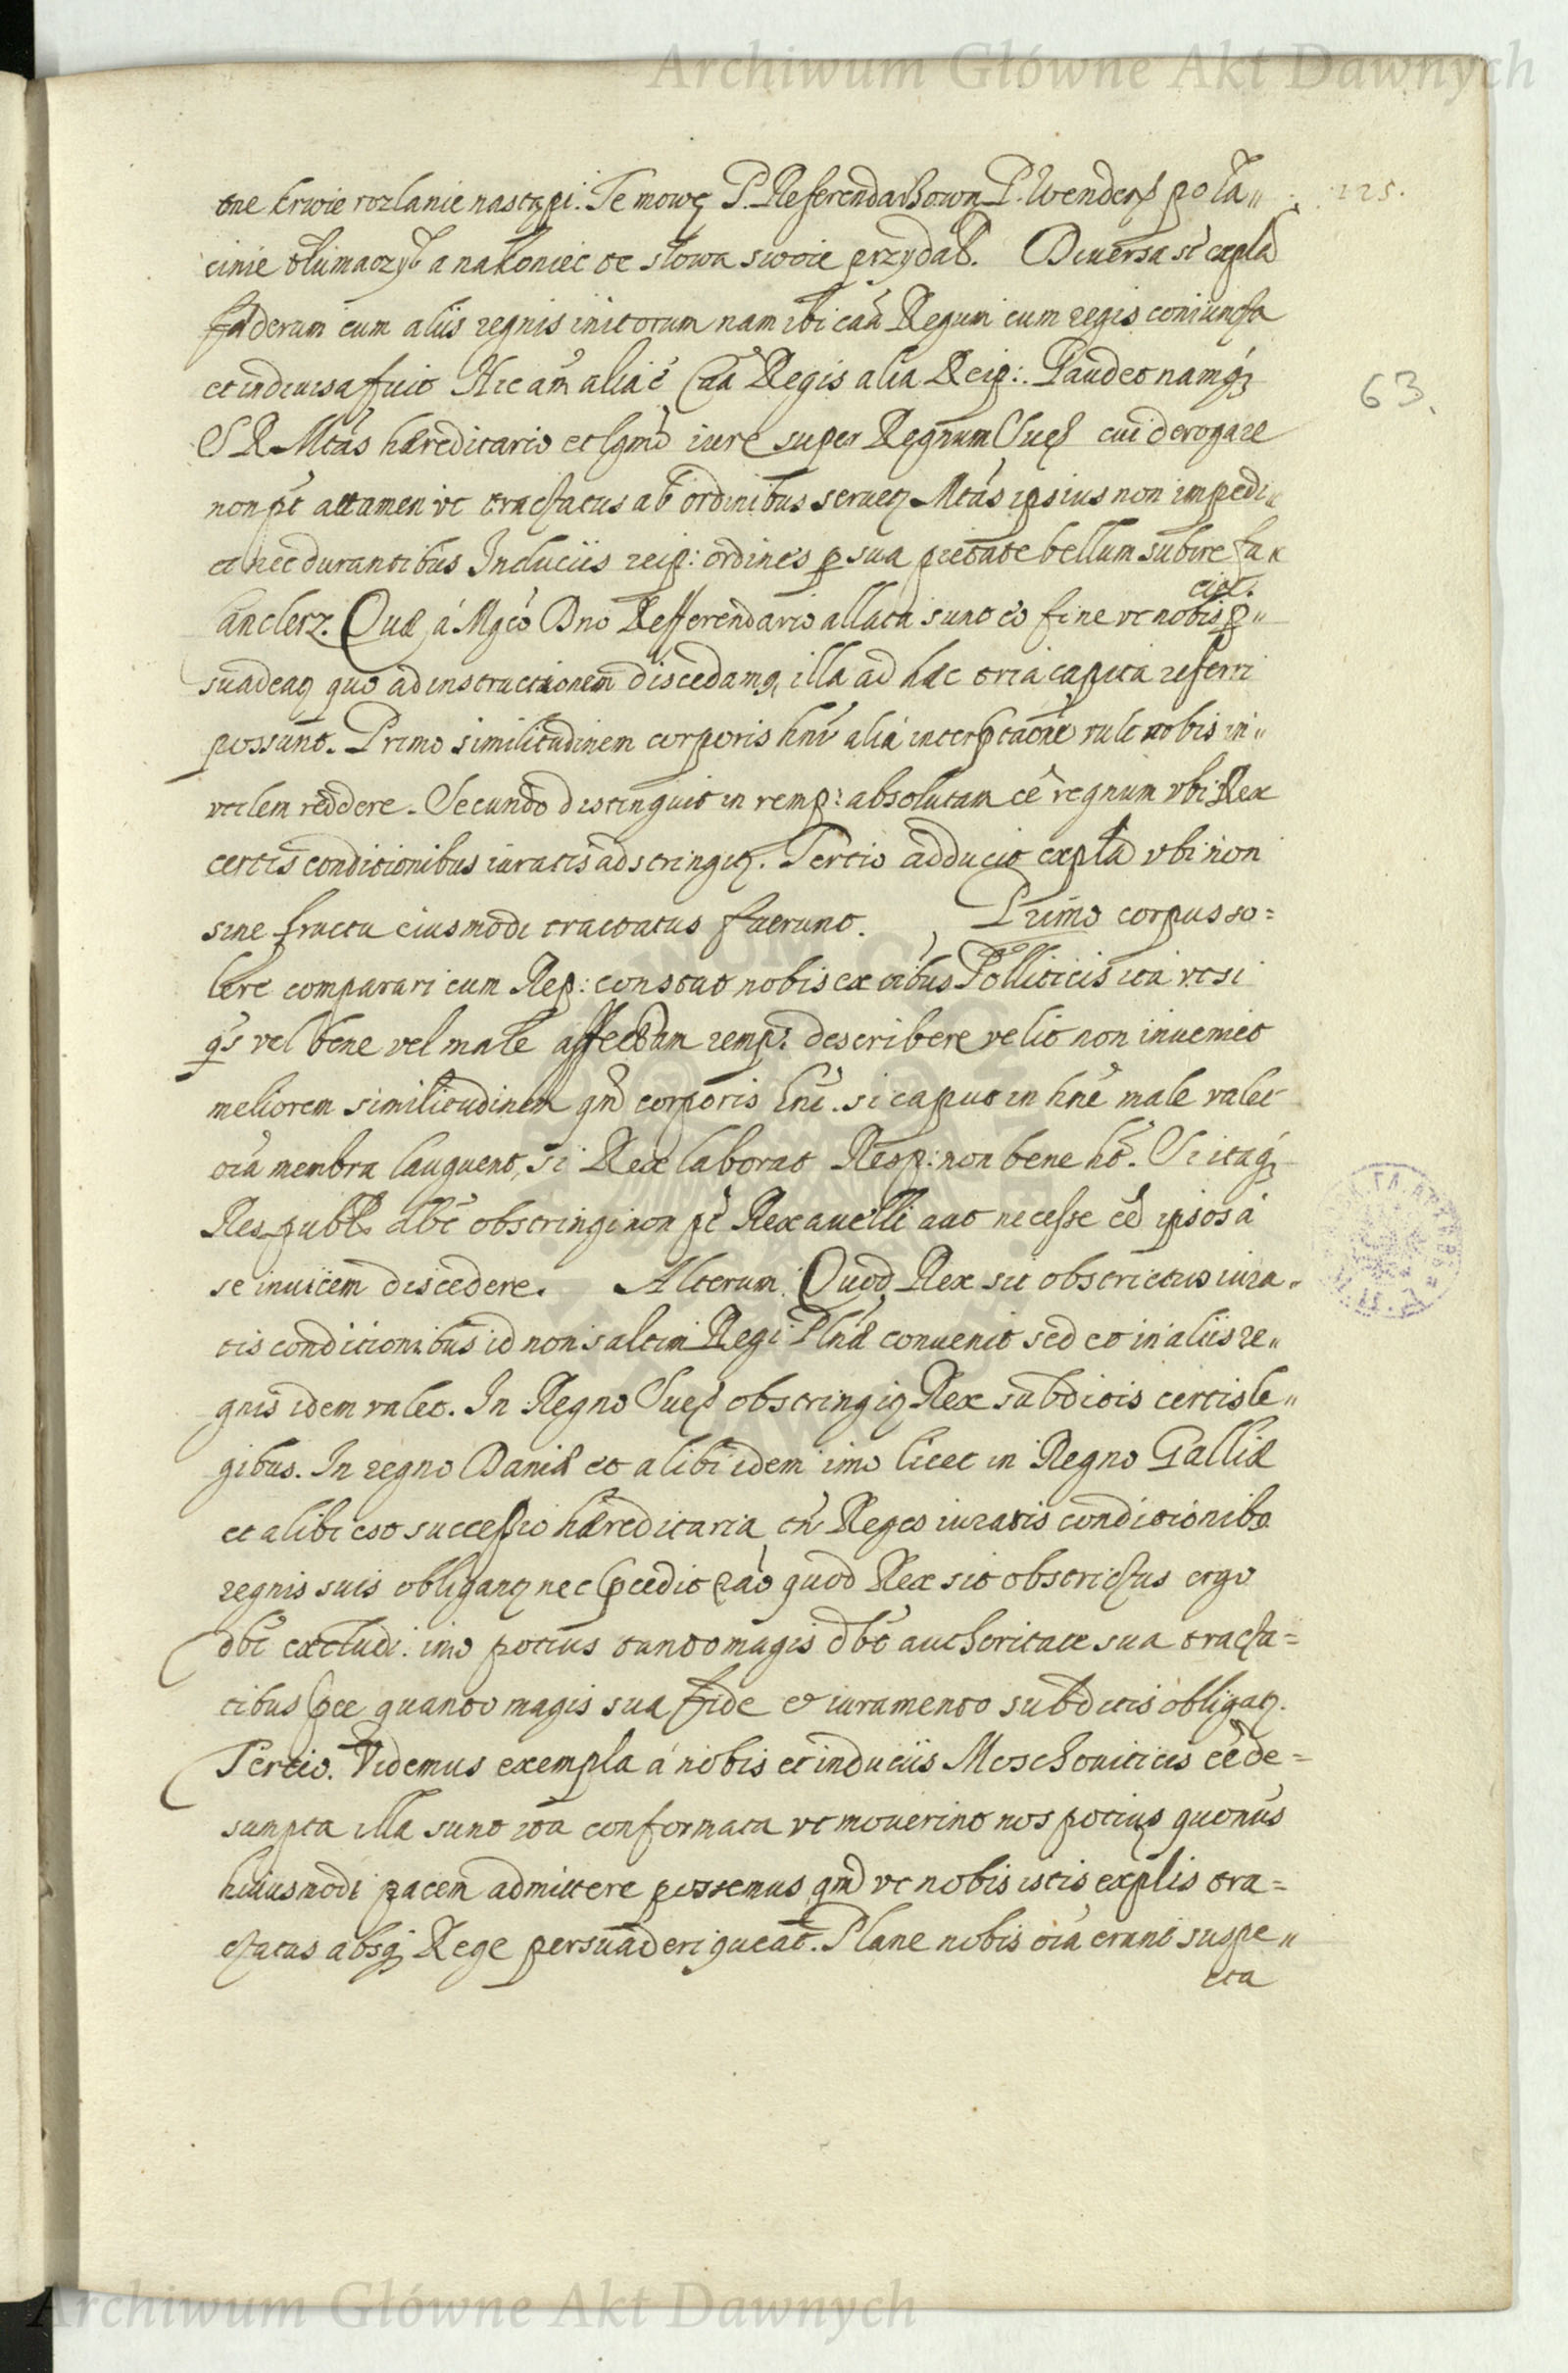 Archiwum Główne Akt Dawnych
one krwie rozlanie nastąpi. Te mowę P. Referendarżową P. Wender9 po ła„ 225.
cinie tłumaczył a nakoniec te słowa swoie przydał. Diuersa st̃ expla
fæderum cum aliis regnis initorum nam ibi cãa Regum cum regis coniuncta
et indiuisa fuit Hic aũt alia ẽ cãa Regis alia Reip: Gaudet namq;
63.
S R Mtãs hæreditario et legmõ iure super Regnum Sueã cui derogare
non põt attamen vt tractatus ab ordinibus seruet9 Mtãs ipsius non impedi„
et nec durantibus Induciis reip: ordines p sua pietate bellum subire fa„
ciet.
Kanclerz. Quæ á Mgcó Dno Refferendario allata sunt eo fine vt nobis p„
suadeat9 quo ad instructionem discedam9 illa ad hæc tria capita referri
possunt. Primo similitudinem corporis hnĩ aliá interptaõne vult nobis in„
vtilem reddere. Secundo distinguit in remp: absolutam ee regnum vbi Rex
certis conditionibus iuratis adstringit9. Tertio adducit expla vbi non
sine fructu eiusmodi tractatus fuerunt. Primo corpus so=
lere comparari cum Rep: constat nobis ex oibus Polliticis ita vt si
qs vel bene vel male affectam remp: describere velit non inueniet
meliorem similitudinem qm̃ corporis hnĩ. si caput in hnẽ male valet
oia membra languent, si Rex laborat Resp: non bene ht̃. Si itaq;
Respubl. dbẽt obstringi non põt Rex auelli aut necesse eẽ ipsos á
se inuicem discedere. Alterum. Quod Rex sit obstrictus iura„
tis conditionibus id non saltim Regi Plnæ conuenit sed et in aliis re„
gnis idem valet. In Regno Sueã obstringit9 Rex subditis certis le„
gibus. In regno Daniæ et alibi idem imo licet in Regno Galliæ
et alibi est successio hæreditaria tñ Reges iuratis conditionib9
regnis suis obligant9 nec pcedit raõ quod Rex sit obstrictus ergo
dbẽt excludi. imo potius tanto magis dbẽt authoritate sua tracta=
tibus pee quanto magis sua fide et iuramento subditis obligat9.
Tertio. Videmus exempla á nobis et induciis Moschouiticis eẽ de=
sumpta illa sunt ita conformata vt mouerint nos potius quonus
huiusmodi pacem admittere possemus qm̃ vt nobis istis explis tra=
ctatus absq; Rege persuaderi queat. Plane nobis oia erant suspe„
cta
Archiwum Główne Akt Dawnych